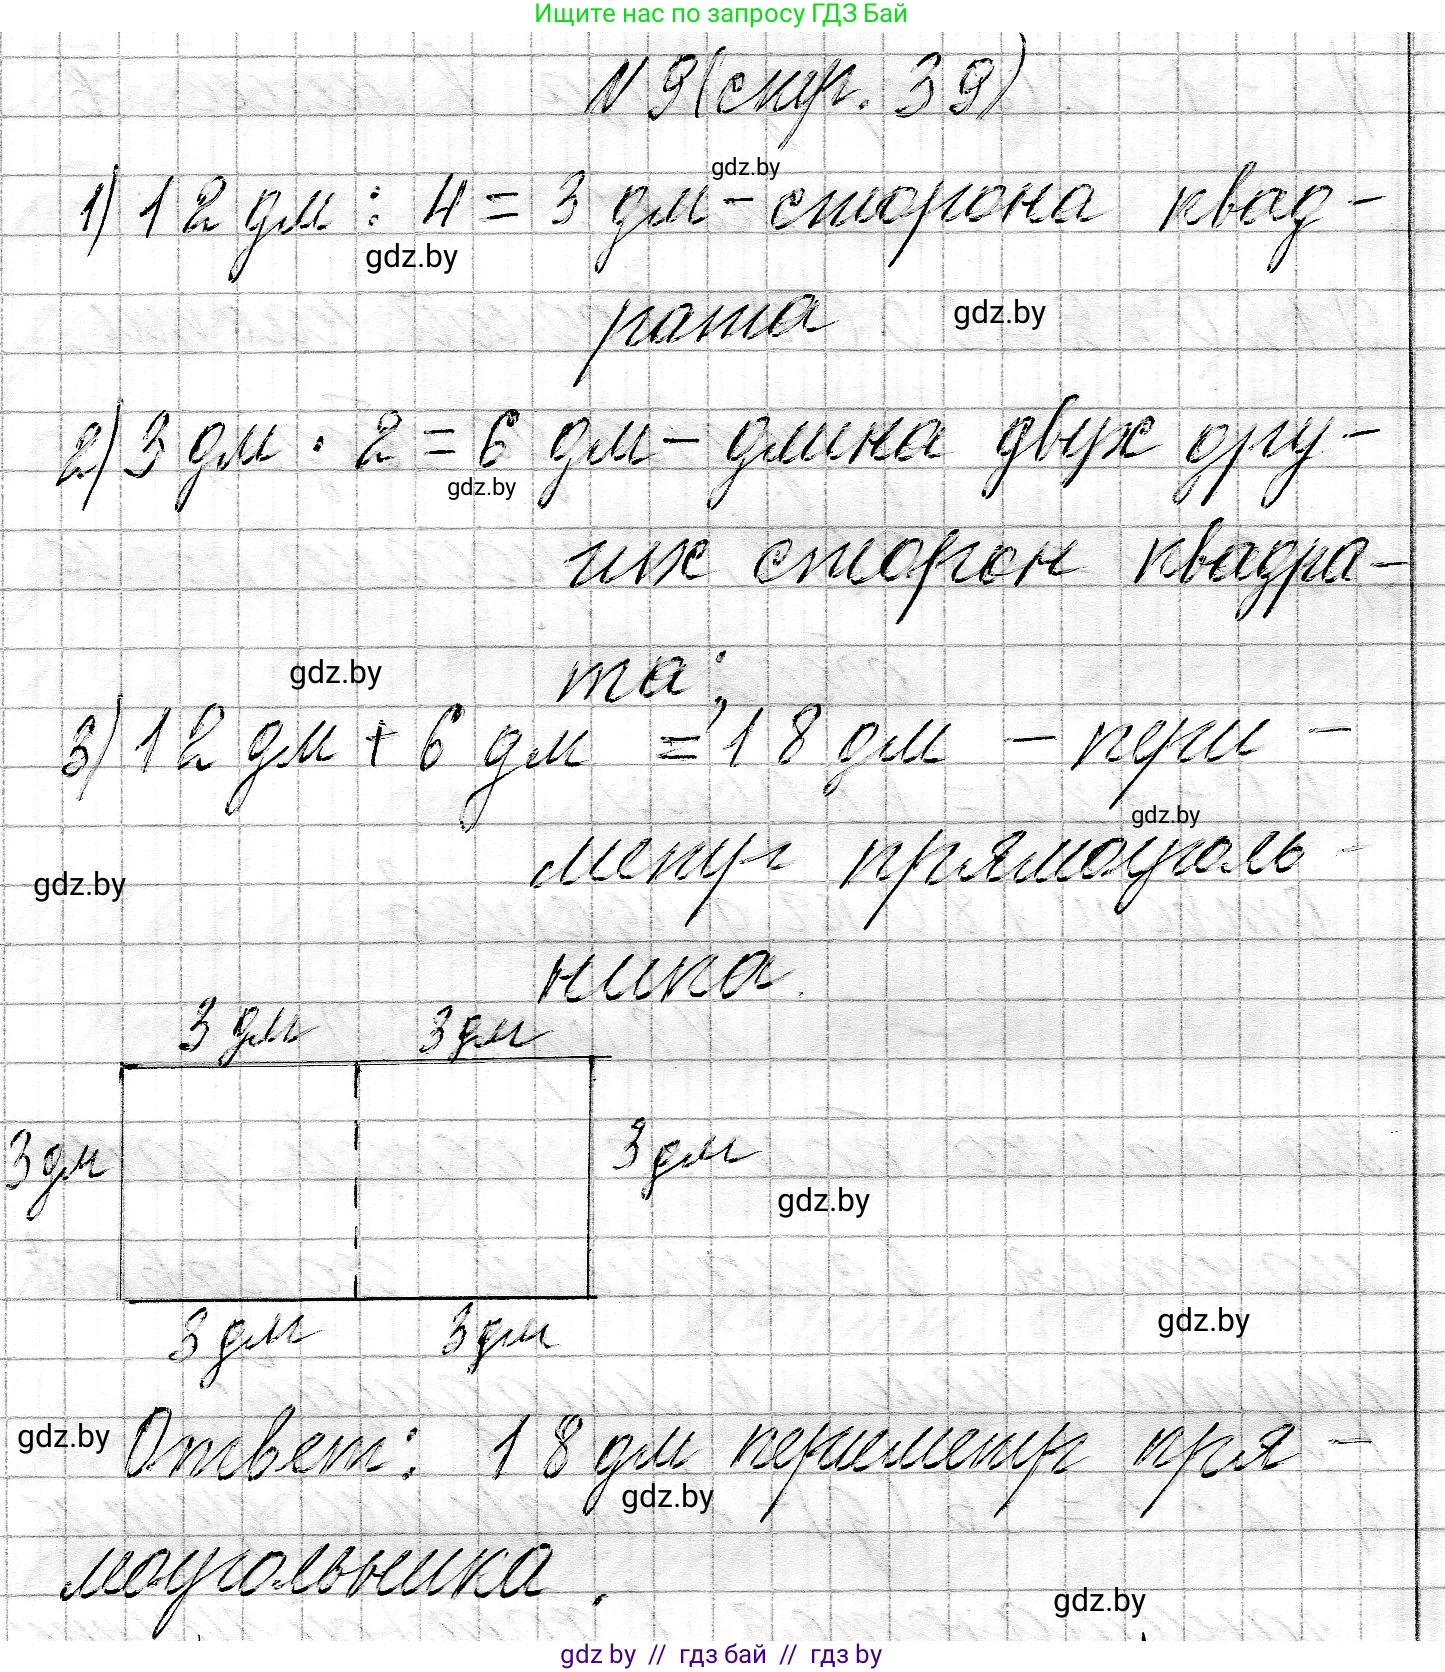 Ищите нас по запросу ГДЗ Бай
N 9 (стр. 39)
gdz.by
1) 12 дм : 4 = 3 дм - сторона квад-
gdz.by
рата
gdz.by
2) 3 дм · 2 = 6 дм - длина двух дру-
gdz.by
гих сторон квадра-
та;
gdz.by
3) 12 дм + 6 дм = 18 дм - пери-
gdz.by
метр прямоуголь-
gdz.by
ника.
3 дм 3 дм
3 дм 3 дм
gdz.by
3 дм 3 дм
gdz.by
Ответ: 18 дм периметр пря-
gdz.by
gdz.by
моугольника.
gdz.by
gdz.by // гдз бай // гдз by